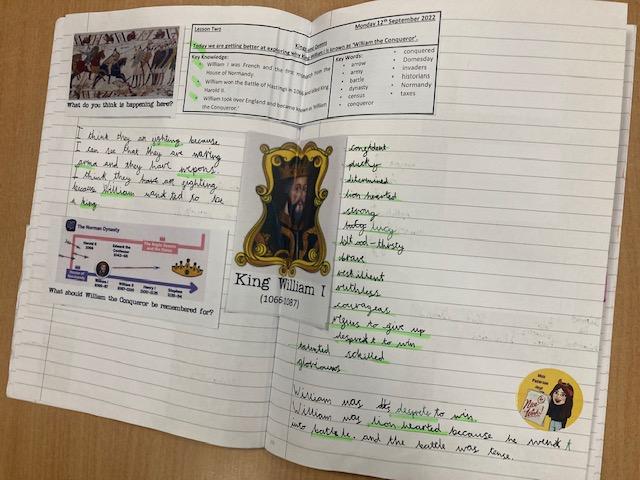 Lesson Two
Monday 12th September 2022
Kings and Queens
Today we are getting better at exploring why King William I is known as 'William the Conqueror'.
Key Knowledge:
William I was French and the first monarch from the
House of Normandy.
William won the Battle of Hastings in 1066 and killed King
Harold II.
William took over England and became known as 'William
the Conqueror.'
Key Words:
arrow
army
battle
dynasty
census
conqueror
conquered
Domesday
invaders
historians
Normandy
taxes
What do you think is happening here?
I think they are fighting because
I can se that they are waring
arma and they have wepons
I think they have are fighting
because William want ted to be
a king
The Norman Dynasty
Harold II
1066
Edward the
Confessor
1042-66
William I
1066-87
William II
1087-1100
Henry I
1100-1135
Stephen
1135-54
What should William the Conqueror be remembered for?
King William I
(1066-1087)
confident
determined
lion hearted
strong
lucy
blood-thirsty
brave
resilient
ruthless
courageas
to give up
to win
talented skilled
gloriouus
William was desprete to win.
William was lion hearted because he went t
into battle, and the battle was tense.
Miss
Paterson
says
Nice
Work!